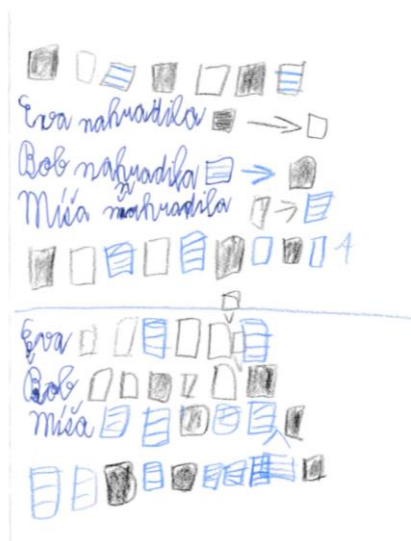 Eva nahradila
Bob nahradila
Míša nahradila
4
Eva
Bob
Míša